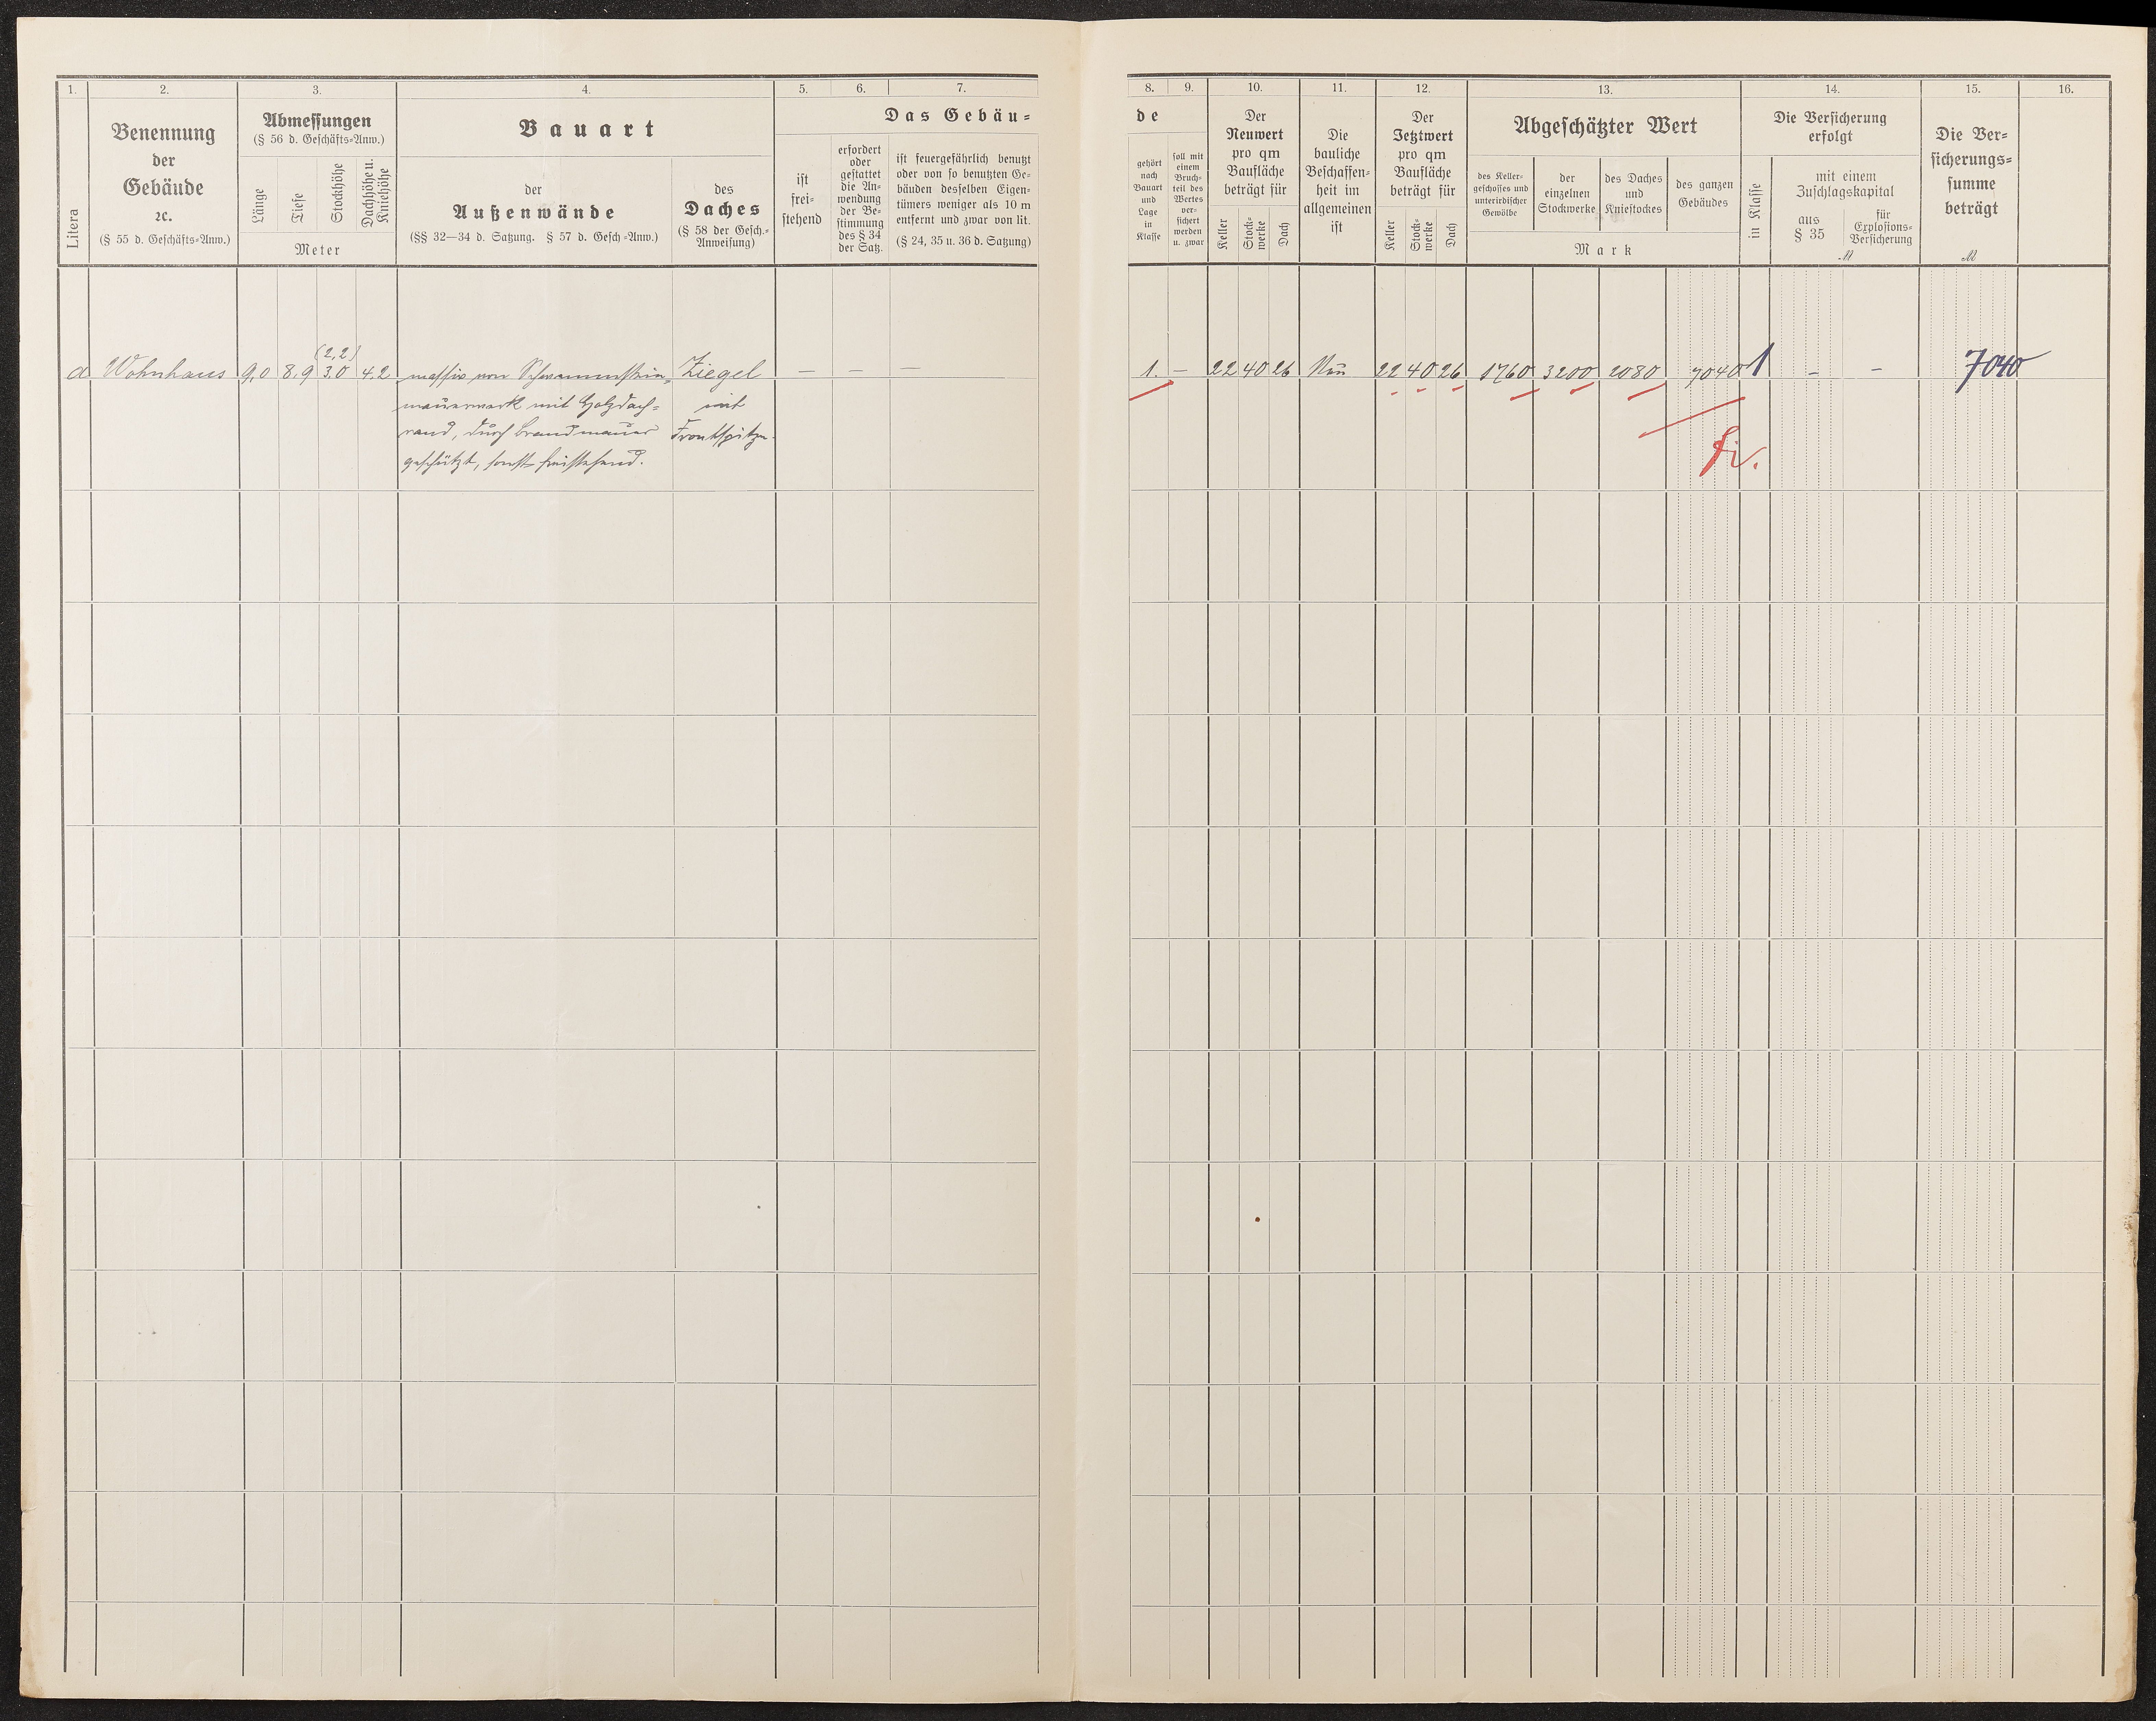 1. 2. 3. 4. 5. 6. 7.
Litera
Benennung
der
Gebäude
ꝛc.
(§ 55 d. Geschäfts=Anw.)
Abmessungen
(§ 56 d. Geschäfts=Anw.)
Länge
Tiefe
Stockhöhe
Dachhöhe u.
Kniehöhe
Meter
Bauart
der
Außenwände
(§§ 32—34 d. Satzung. § 57 d. Gesch.=Anw.)
des
Daches
(§ 58 der Gesch.=
Anweisung)
Das Gebäu=
ist
frei=
stehend
erfordert
oder
gestattet
die An=
wendung
der Be=
stimmung
des § 34
der Satz.
ist feuergefährlich benutzt
oder von so benutzten Ge=
bäuden desselben Eigen=
tümers weniger als 10 m
entfernt und zwar von lit.
(§ 24, 35 u. 36 d. Satzung)
a Wohnhaus 9,0 8,9 (2,2) 3,0 4,2
massiv von Schwemmstein=
mauerwerk mit Holzdach=
rand, durch Brandmauer
geschützt, sonst freistehend.
Ziegel
mit
Frontspitze
— — —
8. 9. 10. 11. 12. 13. 14. 15. 16.
de
gehört
nach
Bauart
und
Lage
in
Klasse
soll mit
einem
Bruch=
teil des
Wertes
ver=
sichert
werden
u. zwar
Der
Neuwert
pro qm
Baufläche
beträgt für
Keller
Stock=
werke
Dach
Die
bauliche
Beschaffen=
heit im
allgemeinen
ist
Der
Jetztwert
pro qm
Baufläche
beträgt für
Keller
Stock=
werke
Dach
Abgeschätzter Wert
des Keller=
geschosses und
unterirdischer
Gewölbe
der
einzelnen
Stockwerke
des Daches
und
Kniestockes
des ganzen
Gebäudes
Mark
Die Versicherung
erfolgt
in Klasse
mit einem
Zuschlagskapital
aus
§ 35
für
Explosions=
Versicherung
M
Die Ver=
sicherungs=
summe
beträgt
M
1. — 22 40 26 Neu 22 40 26 1760 3200 2080 7040 1 — — 7040